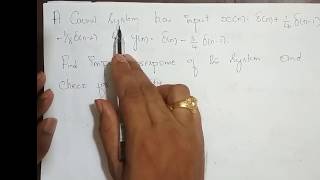 A Causal System has input x(n) = δ(n) + 1/4 δ(n-1)
- 1/8 δ(n-2) y(n) = δ(n) - 3/4 δ(n-1).
Find response of the System and
check